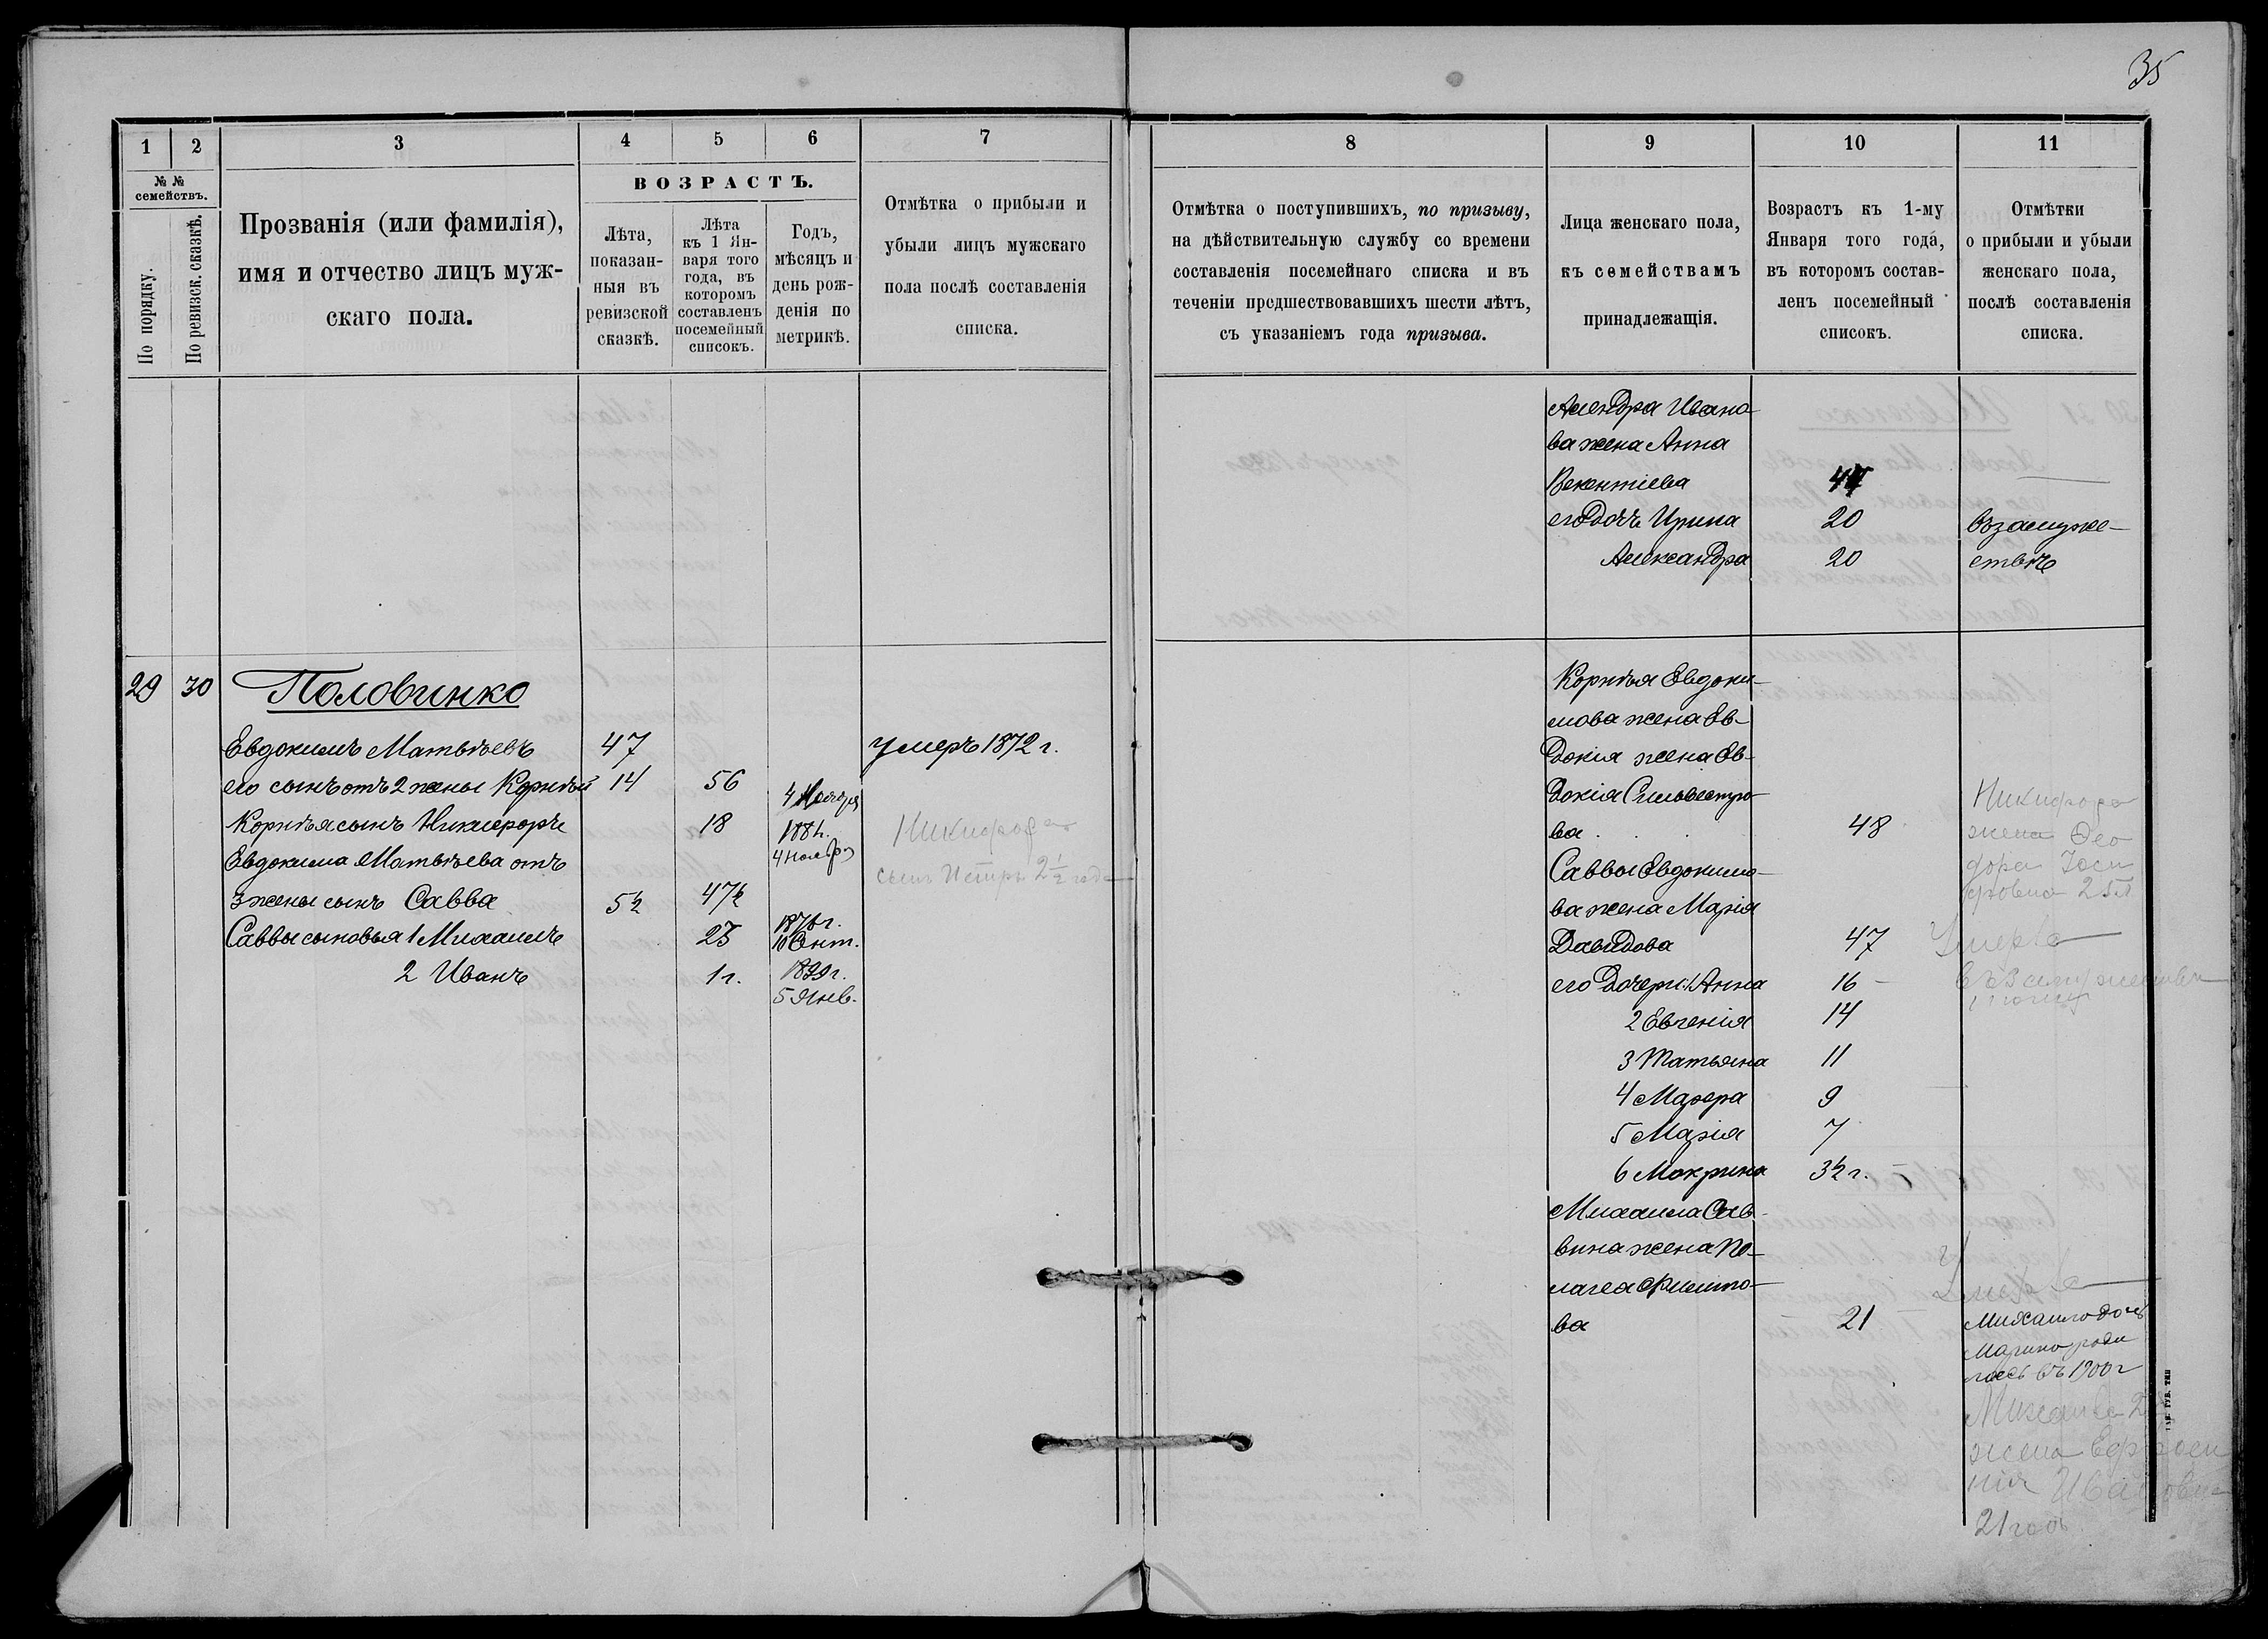 35
1
2
3
4
5
6
7
№ №
семействъ.
По порядку.
По ревизск. сказкѣ.
Прозванія (или фамилія),
имя и отчество лицъ муж-
скаго пола.
ВОЗРАСТЪ.
Лѣта,
показан-
ныя въ
ревизской
сказкѣ.
Лѣта
къ 1 Ян-
варя того
года, въ
которомъ
составленъ
посемейный
списокъ.
Годъ,
мѣсяцъ и
день рож-
денія по
метрикѣ.
Отмѣтка о прибыли и
убыли лицъ мужскаго
пола послѣ составленія
списка.
29 30 Половинко
Евдокимъ Матвѣевъ 47 умеръ 1872 г.
его сынъ отъ 2 жены Корнѣй 14 56
Корнѣя сынъ Никифоръ 18 188
4 Ноября
Никифора
сынъ Петръ 2½ года
Евдокима Матвѣева отъ
3 жены сынъ Савва 5½ 47½
Саввы сыновья 1 Михаилъ 23 1876г.
10 Сент.
2 Иванъ 1 г. 1899г.
5 Янв.
8
9
10
11
Отмѣтка о поступившихъ, по призыву,
на дѣйствительную службу со времени
составленія посемейнаго списка и въ
теченіи предшествовавшихъ шести лѣтъ,
съ указаніемъ года призыва.
Лица женскаго пола,
къ семействамъ
принадлежащія.
Возрастъ къ 1-му
Января того года,
въ которомъ состав-
ленъ посемейный
списокъ.
Отмѣтки
о прибыли и убыли
женскаго пола,
послѣ составленія
списка.
Ивано-
ва жена Анна
Векентіева 47
его дочь Ирина 20 взамуже-
Александра 20 ствѣ
Корнѣя Евдоки-
мова жена Ев-
докія жена Ев-
докія Сильвестро-
ва 48
Никифора
жена Ѳео
дора
Саввы Евдокимо-
ва жена Марія
Давидова 47 Умерла
его дочери: 1 Анна 16 въ замужестви
2 Евгенія 14
3 Татьяна 11
4 Марфа 9
5 Марія 7
6 Мокрина 3½ г.
Михаила Сав-
вина жена Пе-
лагея Филито-
ва 21
Умерла
Михаила дочь
Марина роди
лась въ 1900г
Михаила 2
жена Ефросин
нія Ивановна
21 годъ